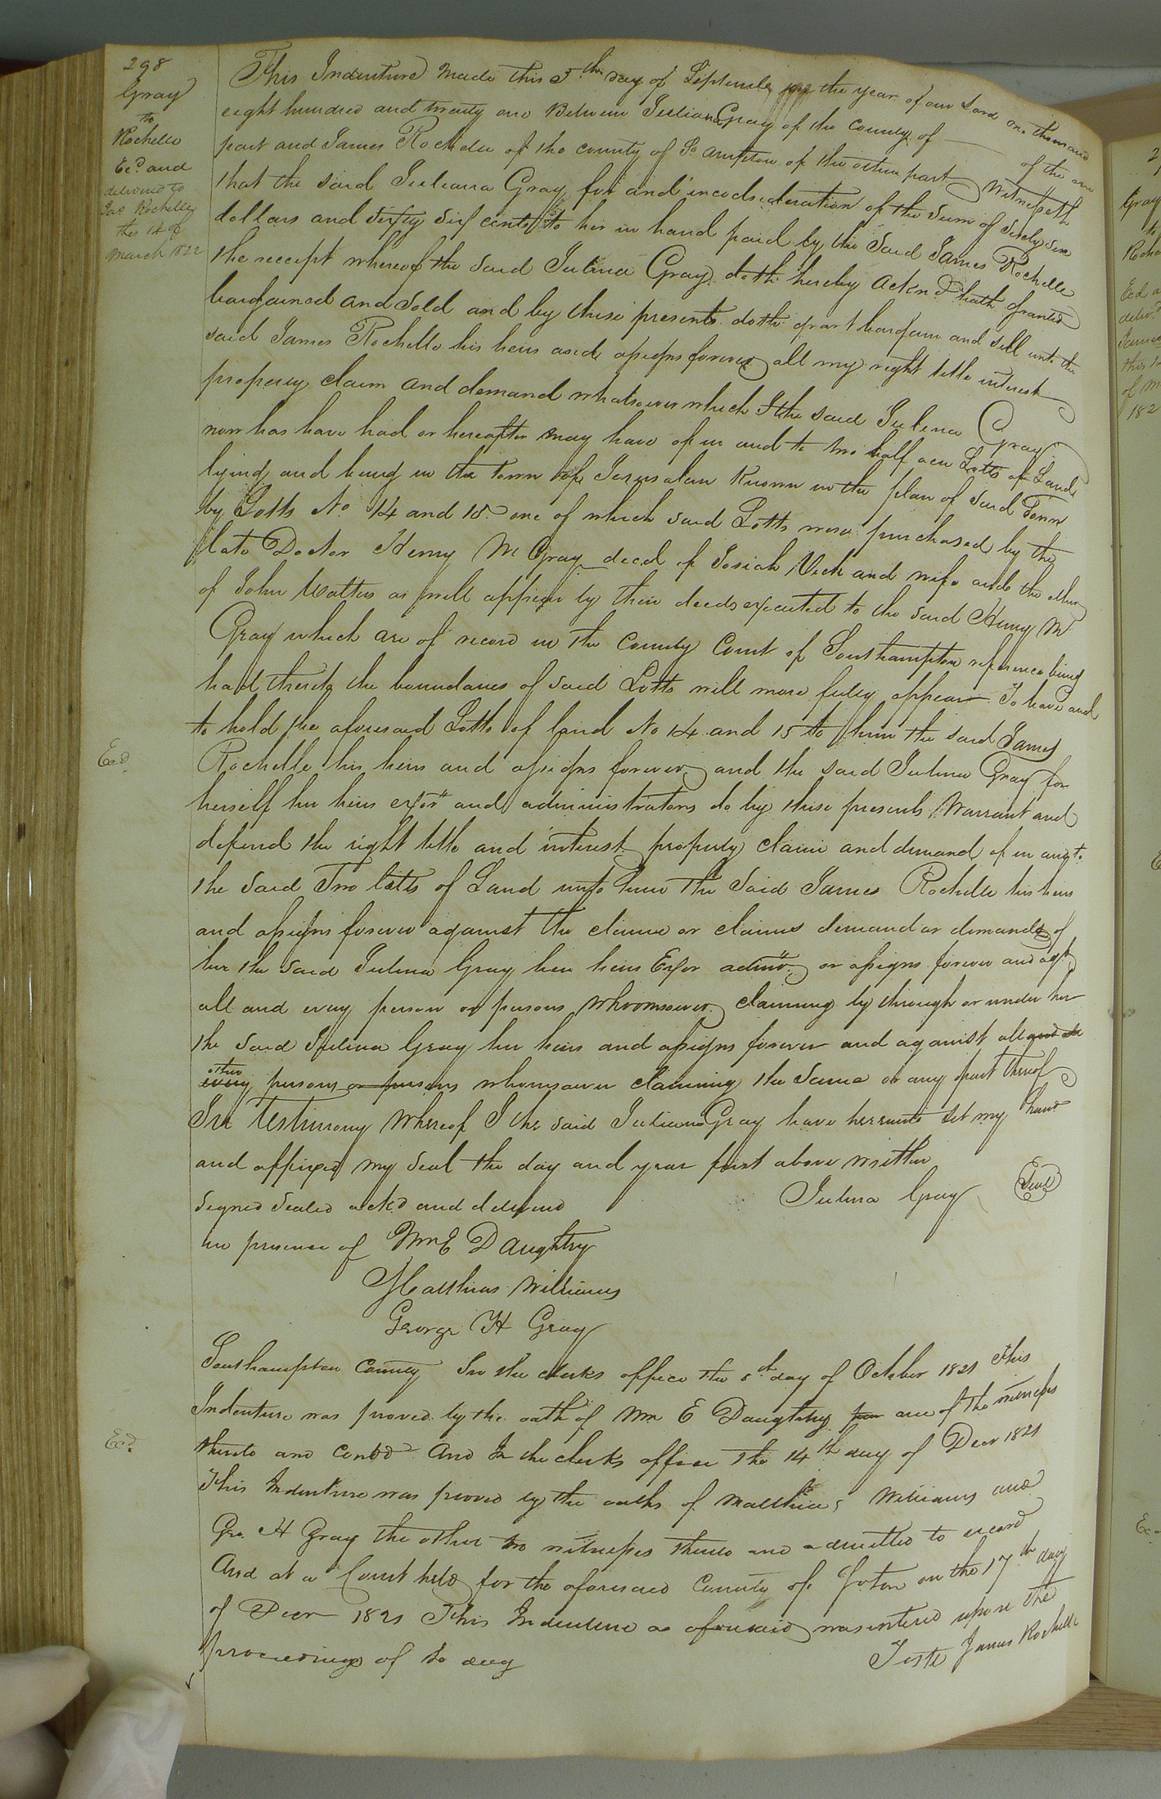 298
Gray
to
Rochelle
Ex.d and
delivered to
Jas Rochelle
the 14 of
March 1822
This Indenture Made this 5th day of September in the year of our Lord one thousand
eight hundred and twenty one Between Juliana Gray of the County of of the one
part and James Rochelle of the County of So ampton of the other part Witnesseth
that the said Juliana Gray for and in consideration of the Sum of Sixty six
dollars and sixty six cents to her in hand paid by the Said James Rochelle
the receipt whereof the said Julina Gray doth hereby Ackn.d hath granted
bargained and sold and by these presents doth grant bargain and sell unto the
said James Rochelle his heirs and assigns forever all my right title interest
property claim and demand whatsoever which I the said Julina Gray
now has have had or hereafter may have of in and to two half acre Lotts of Land
lying and being in the town of Jerusalem known in the plan of said Town
by Lotts No 14 and 15 one of which said Lotts were purchased by the
late Doctor Henry M Gray deced of Josiah Vick and wife and the other
of John Watters as will appear by their deeds executed to the said Henry M
Gray which are of record in the County Court of Southampton reference being
had thereto the boundaries of said Lotts will more fully appear To have and
to hold the aforesaid Lotts of land No 14 and 15 to him the said James
Exd.
Rochelle his heirs and assigns forever and the said Julina Gray for
herself her heirs exors and administrators do by these presents Warrant and
defend the right title and interest property claim and demand of in and to
the said Two lotts of Land unto him the Said James Rochelle his heirs
and assigns forever against the claim or claims demand or demands of
her the said Julina Gray her heirs Exor admrs. or assigns forever and agt
all and every person or persons whoomsoever claiming by through or under her
the said Julina Gray her heirs and assigns forever and against all and
every other persons or persons whomsoever claiming the same or any part thereof
In Testimony Whereof I the said Juliana Gray have hereunto set my hand
and affixed my seal the day and year first above written
Signed Sealed ackd and delivered Julina Gray Seal
in presence of Wm E Daughtry
Matthias Williams
George H Gray
Southampton County In the clerks office the 5th day of October 1821 This
Indenture was proved by the oath of Wm E Daughtry one of the witnesses
Exd.
thereto and Contd And In the clerks office the 14th day of Decr 1821
This Indenture was proved by the oaths of Matthias Williams and
Geo H Gray the other two witnesses thereto and admitted to record
And at a Court held for the aforesaid County of Soton on the 17th day
of Decr 1821 This Indenture as aforesaid was entered upon the
proceedings of sd day Teste James Rochelle
Gray
to